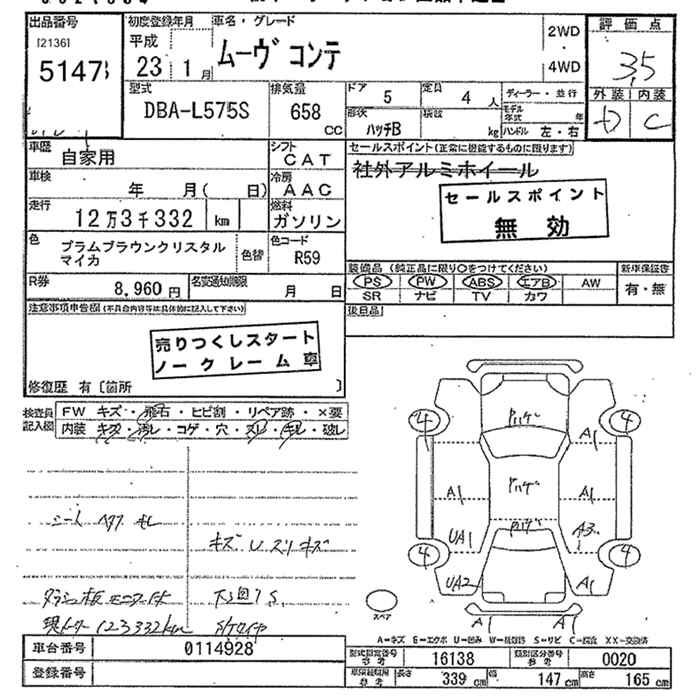 出品番号
[2136]
5147
初度登録年月
平成
23年 1月
車名・グレード
ムーヴ コンテ
2WD
4WD
評価点
3.5
外装 内装
D C
型式
DBA-L575S
排気量
658 CC
ドア 5
定員 4 人
形状 ハッチB
積載 kg
ディーラー・並行
モデル年式 年
ハンドル 左・右
車歴 自家用
シフト CAT
車検 年 月( 日)
冷房 AAC
走行 12万3千332 km
燃料 ガソリン
色 プラムブラウンクリスタルマイカ
色替
色コード R59
R券 8,960円
名変通知期限 月 日
セールスポイント(正常に機能するものに限ります)
社外アルミホイール
セールスポイント
無効
装備品(純正品に限り○をつけてください)
PS PW ABS エアB AW
SR ナビ TV カワ
新車保証書
有・無
後日品
注意事項申告欄(不具合内容等は具体的に記入して下さい)
売りつくしスタート
ノークレーム車
修復歴 有〔箇所 〕
検査員記入欄
FW キズ・飛石・ヒビ割・リペア跡・×要
内装 キズ・汚レ・コゲ・穴・スレ・キレ・破レ
シート ヘタリ キレ
キズ U スリキズ
ダッシュ板モニター付
下廻りS
現メーター123332km
S/Tタイヤ
パリゲー
パリゲー
パリゲー
4 4
A1
A1 A1
UA1 A3
4 4
UA2 A1
A1 A1
スペア
A=キズ E=エクボ U=凹み W=補修跡 S=サビ C=腐食 XX=交換済
車台番号 0114928
登録番号
型式指定番号 参考 16138
類別区分番号 参考 0020
車検証記載 参考
長さ 339 cm
幅 147 cm
高さ 165 cm